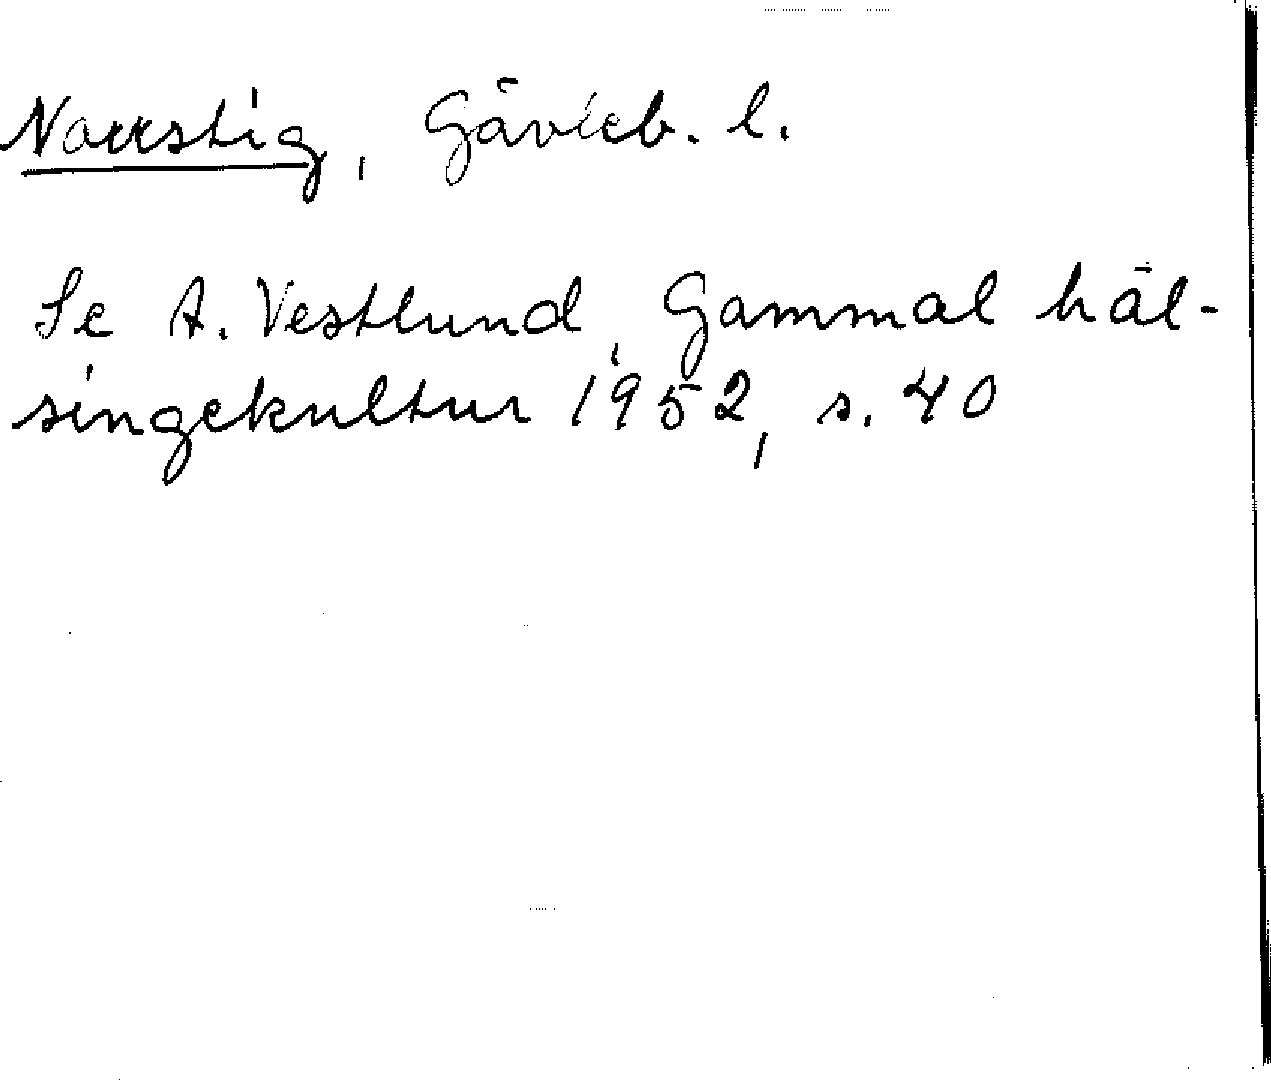 Norrstig, Gävleb. l.
Se A. Vestlund, Gammal häl-
singekultur 1952, s. 40